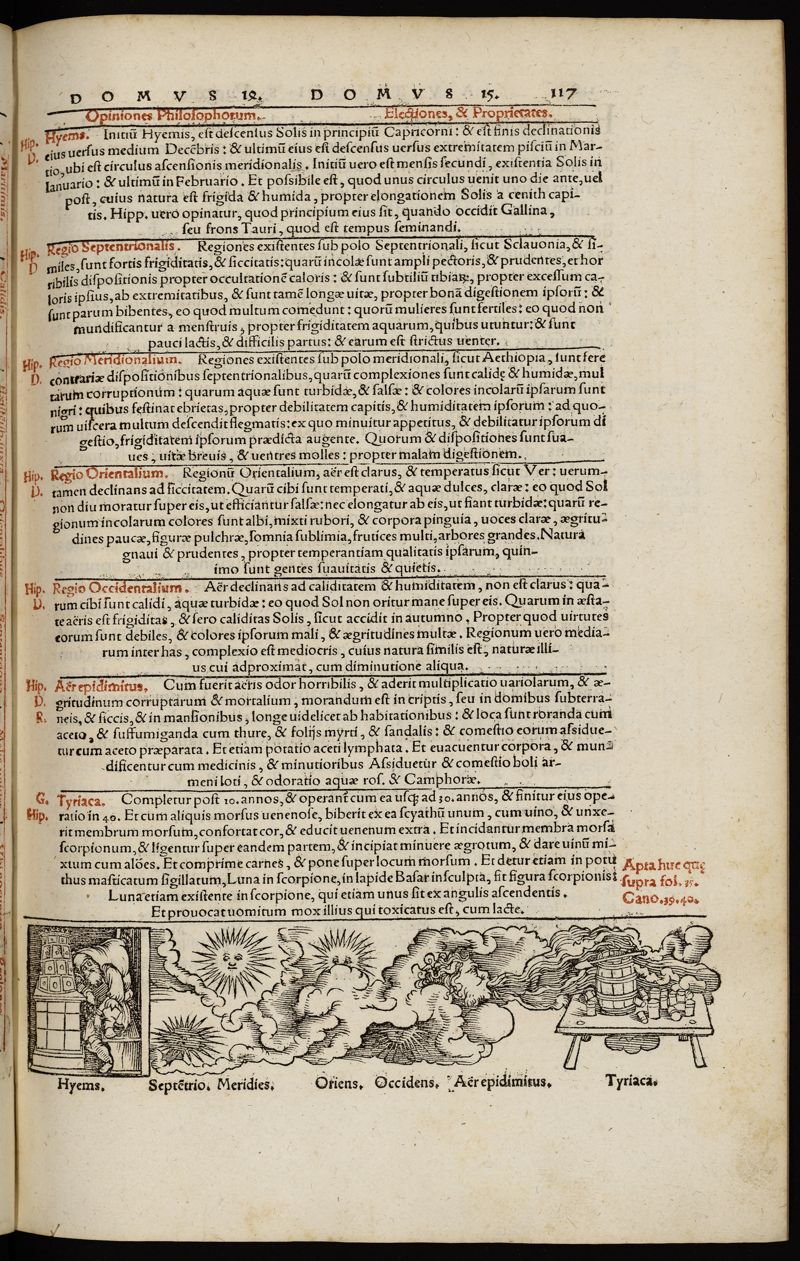 DOMVS 12. DOMVS 15. 117
Opiniones Philosophorum. Electiones, & Proprietates.
Hip. Hyems. Initiũ Hyemis, eſt deſcenſus Solis in principiũ Capricorni : & eſt finis declinationis
D. eius uerſus medium Decẽbris : & ultimũ eius eſt deſcenſus uerſus extremitatem piſciũ in Mar-
tio, ubi eſt circulus aſcenſionis meridionalis. Initiũ uero eſt menſis ſecundi, exiſtentia Solis in
Ianuario : & ultimũ in Februario. Et poſsibile eſt, quod unus circulus uenit uno die ante, uel
poſt, cuius natura eſt frigida & humida, propter elongationem Solis a cenith capi-
tis. Hipp. uero opinatur, quod principium eius ſit, quando occidit Gallina,
ſeu frons Tauri, quod eſt tempus ſeminandi.
Hip. Regio Septentrionalis. Regiones exiſtentes ſub polo Septentrionali, ſicut Sclauonia, & ſi-
D miles, ſunt fortis frigiditatis, & ſiccitatis: quarũ incolæ ſunt ampli pectoris, & prudentes, et hor
ribilis diſpoſitionis propter occultationẽ caloris : & ſunt ſubtiliũ tibiaꝝ, propter exceſſum ca-
loris ipſius, ab extremitatibus, & ſunt tamẽ longæ uitæ, propter bonã digeſtionem ipſorũ : &
ſunt parum bibentes, eo quod multum comedunt : quorũ mulieres ſunt ſertiles: eo quod non
mundificantur a menſtruis, propter frigiditatem aquarum, quibus utuntur: & ſunt
pauci lactis, & difficilis partus : & earum eſt ſtrictus uenter.
Hip. Regio Meridionalium. Regiones exiſtentes ſub polo meridionali, ſicut Aethiopia, ſunt fere
D. contrariæ diſpoſitionibus ſeptentrionalibus, quarũ complexiones ſunt calidę & humidæ, mul
tarum corruptionum : quarum aquæ ſunt turbidæ, & ſalſæ : & colores incolarũ ipſarum ſunt
nigri : quibus feſtinat ebrietas, propter debilitatem capitis, & humiditatem ipſorum : ad quo-
rum uiſcera multum deſcendit flegmatis: ex quo minuitur appetitus, & debilitatur ipſorum di
geſtio, frigiditatem ipſorum prædicta augente. Quorum & diſpoſitiones ſunt ſua-
ues, uitæ breuis, & uentres molles : propter malam digeſtionem.
Hip. Regio Orientalium. Regionũ Orientalium, aër eſt clarus, & temperatus ſicut Ver : uerum-
D. tamen declinans ad ſiccitatem. Quarũ cibi ſunt temperati, & aquæ dulces, claræ : eo quod Sol
non diu moratur ſuper eis, ut efficiantur ſalſæ: nec elongatur ab eis, ut fiant turbidæ: quarũ re-
gionum incolarum colores ſunt albi, mixti rubori, & corpora pinguia, uoces claræ, ægritu-
dines paucæ, figuræ pulchræ, ſomnia ſublimia, frutices multi, arbores grandes. Natura
gnaui & prudentes, propter temperantiam qualitatis ipſarum, quin-
imo ſunt gentes ſuauitatis & quietis.
Hip. Regio Occidentalium. Aër declinans ad caliditatem & humiditatem, non eſt clarus : qua-
D. rum cibi ſunt calidi, aquæ turbidæ : eo quod Sol non oritur mane ſuper eis. Quarum in æſta-
te aëris eſt frigiditas, & ſero caliditas Solis, ſicut accidit in autumno. Propter quod uirtutes
eorum ſunt debiles, & colores ipſorum mali, & ægritudines multæ. Regionum uero media-
rum inter has, complexio eſt mediocris, cuius natura ſimilis eſt, naturæ illi-
us cui adproximat, cum diminutione aliqua.
Hip. Aër epidimitus. Cum fuerit aëris odor horribilis, & aderit multiplicatio uariolarum, & æ-
D. gritudinum corruptarum & mortalium, morandum eſt in criptis, ſeu in domibus ſubterra-
R. neis, & ſiccis, & in manſionibus, longe uidelicet ab habitationibus : & loca ſunt roranda cum
aceto, & ſuffumiganda cum thure, & folijs myrti, & ſandalis : & comeſtio eorum aſsidue-
tur cum aceto præparata. Et etiam potatio aceti lymphata. Et euacuentur corpora, & mun-
dificentur cum medicinis, & minutioribus Aſsiduetur & comeſtio boli ar-
meni loti, & odoratio aquæ roſ. & Camphoræ.
G. Tyriaca. Completur poſt 10. annos, & operant̃ cum ea uſq; ad 30. annos, & finitur eius ope-
Hip. ratio in 40. Et cum aliquis morſus uenenoſe, biberit ex ea ſcyathũ unum, cum uino, & unxe-
rit membrum morſum, confortat cor, & educit uenenum extra. Et incidantur membra morſa
ſcorpionum, & ligentur ſuper eandem partem, & incipiat minuere ægrotum, & dare uinũ mi-
xtum cum aloës. Et comprime carnes, & pone ſuper locum morſum. Et detur etiam in potu
thus maſticatum ſigillatum, Luna in ſcorpione, in lapide Baſar inſculpta, ſit figura ſcorpionis:
Luna etiam exiſtente in ſcorpione, qui etiam unus ſit ex angulis aſcendentis.
Et prouocat uomitum mox illius qui toxicatus eſt, cum lacte.
Apta huic quę
ſupra fol. 35.
Cano. 39. 40.
Hyems. Septẽtrio. Meridies. Oriens. Occidens. Aër epidimitus. Tyriaca.